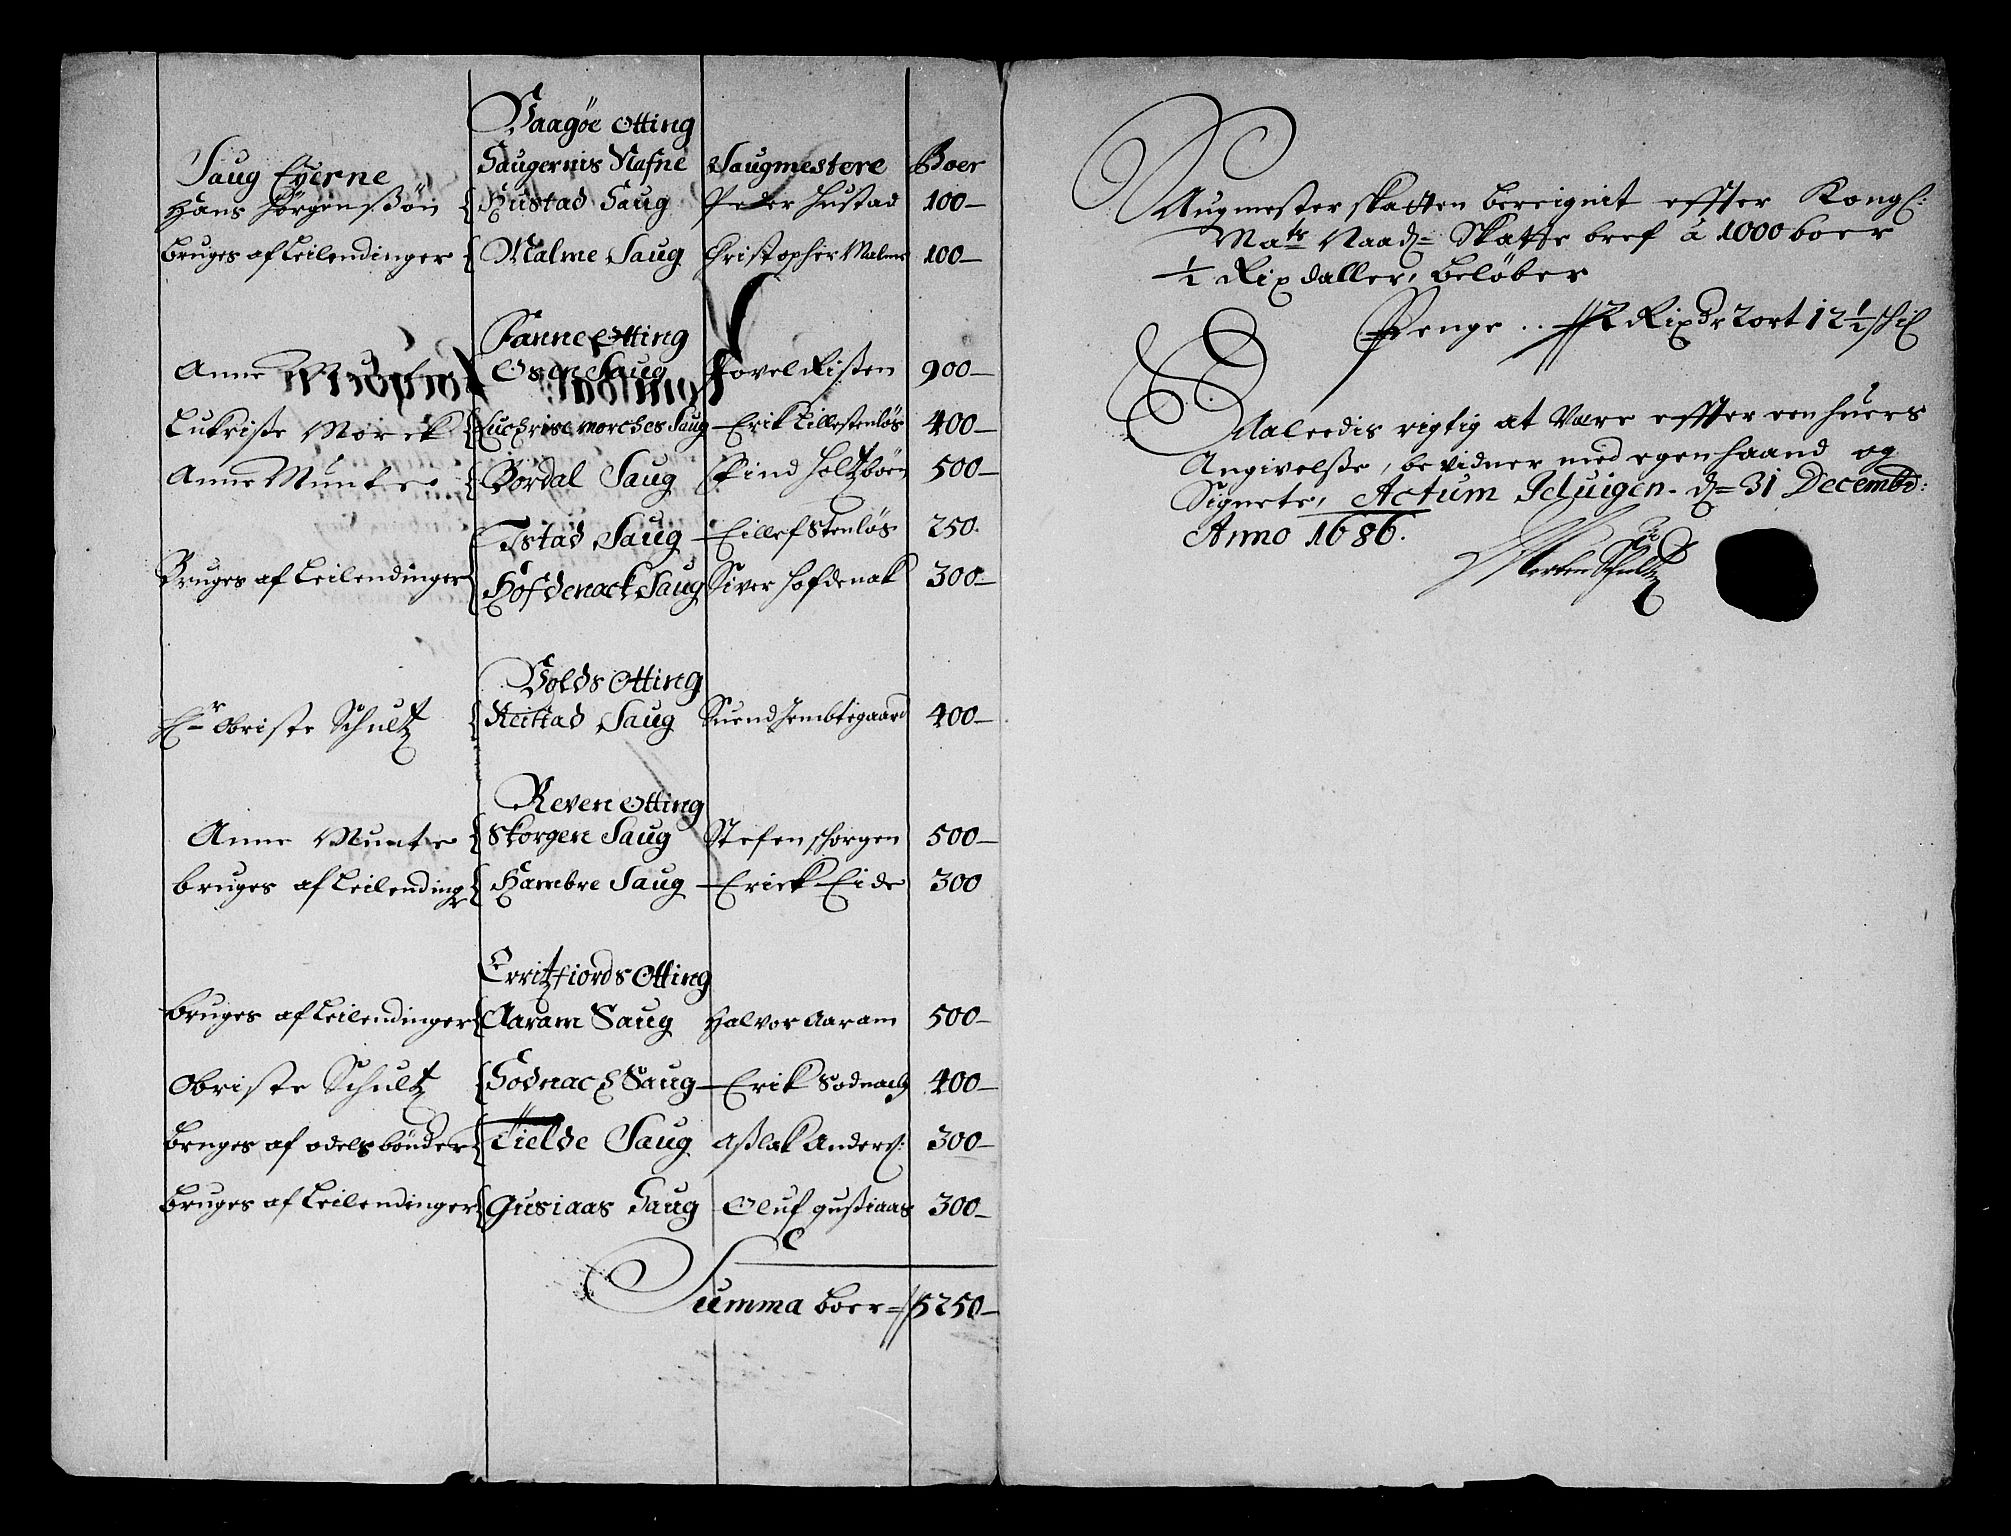 Vaagöe Otting
Saug Eyerne Saugernis Nafne Saugmestere Boer
Hans Jörgensßön Hustad Saug Peder Hustad 100
bruges af Leilendinger Malme Saug Christopher Malme 100
Fanne Otting
Anne Osen Saug Povel Risten 900
Lukriße Mörck Luchrise morches Saug Erik Lillestenlös 400
Anne Munte Bordal Saug Find Holtzböen 500
Istad Saug Eillef Stenlös 250
Bruges af Leilendinger Hofdenack Saug Siver Hofdenak 300
Volds Otting
Hr Obriste Schultz Reistad Saug Suend Jembtegaard 400
Reven Otting
Anne Munte Skorgen Saug Stefen Schorgen 500
bruges af Leilendinger Hambre Saug Erick Eide 300
Erritzfiords Otting
bruges af Leilendinger Aaram Saug Halvor Aaram 500
Obriste Schultz Sodnach Saug Erik Sodnach 400
bruges af odelsbönder Tielde Saug Aßlak Anders: 300
bruges af Leilendinger Gusiaas Saug Oluf gußiaas 300
Summa boer 5250
Saugmester skatten beregnit effter Kongl:
Mats Naad Skatte bref à 1000 boer
½ Rix daller, belöber
Penge .. 2 Rixdr 2 ort 12½ schil
Saaleedis rigtig at Være effter een huers
Angivelsße, bevidner med egen haand og
Signete, Actum Schuigen. d 31 Decembr:
Anno 1686.